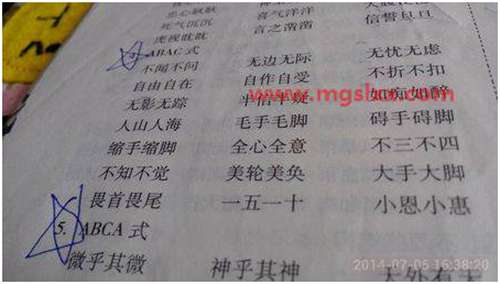 忠心耿耿 喜气洋洋
死气沉沉 言之凿凿 信誓旦旦
虎视眈眈
ABAC 式
不闻不问 无边无际 无忧无虑
自由自在 自作自受 不折不扣
无影无踪 半信半疑 如痴如醉
www.mgshu.com
人山人海 毛手毛脚 碍手碍脚
缩手缩脚 全心全意 不三不四
不知不觉 美轮美奂 大手大脚
畏首畏尾 一五一十 小恩小惠
5. ABCA 式
微乎其微 神乎其神 天外有天
2014-07-05 16:38:20